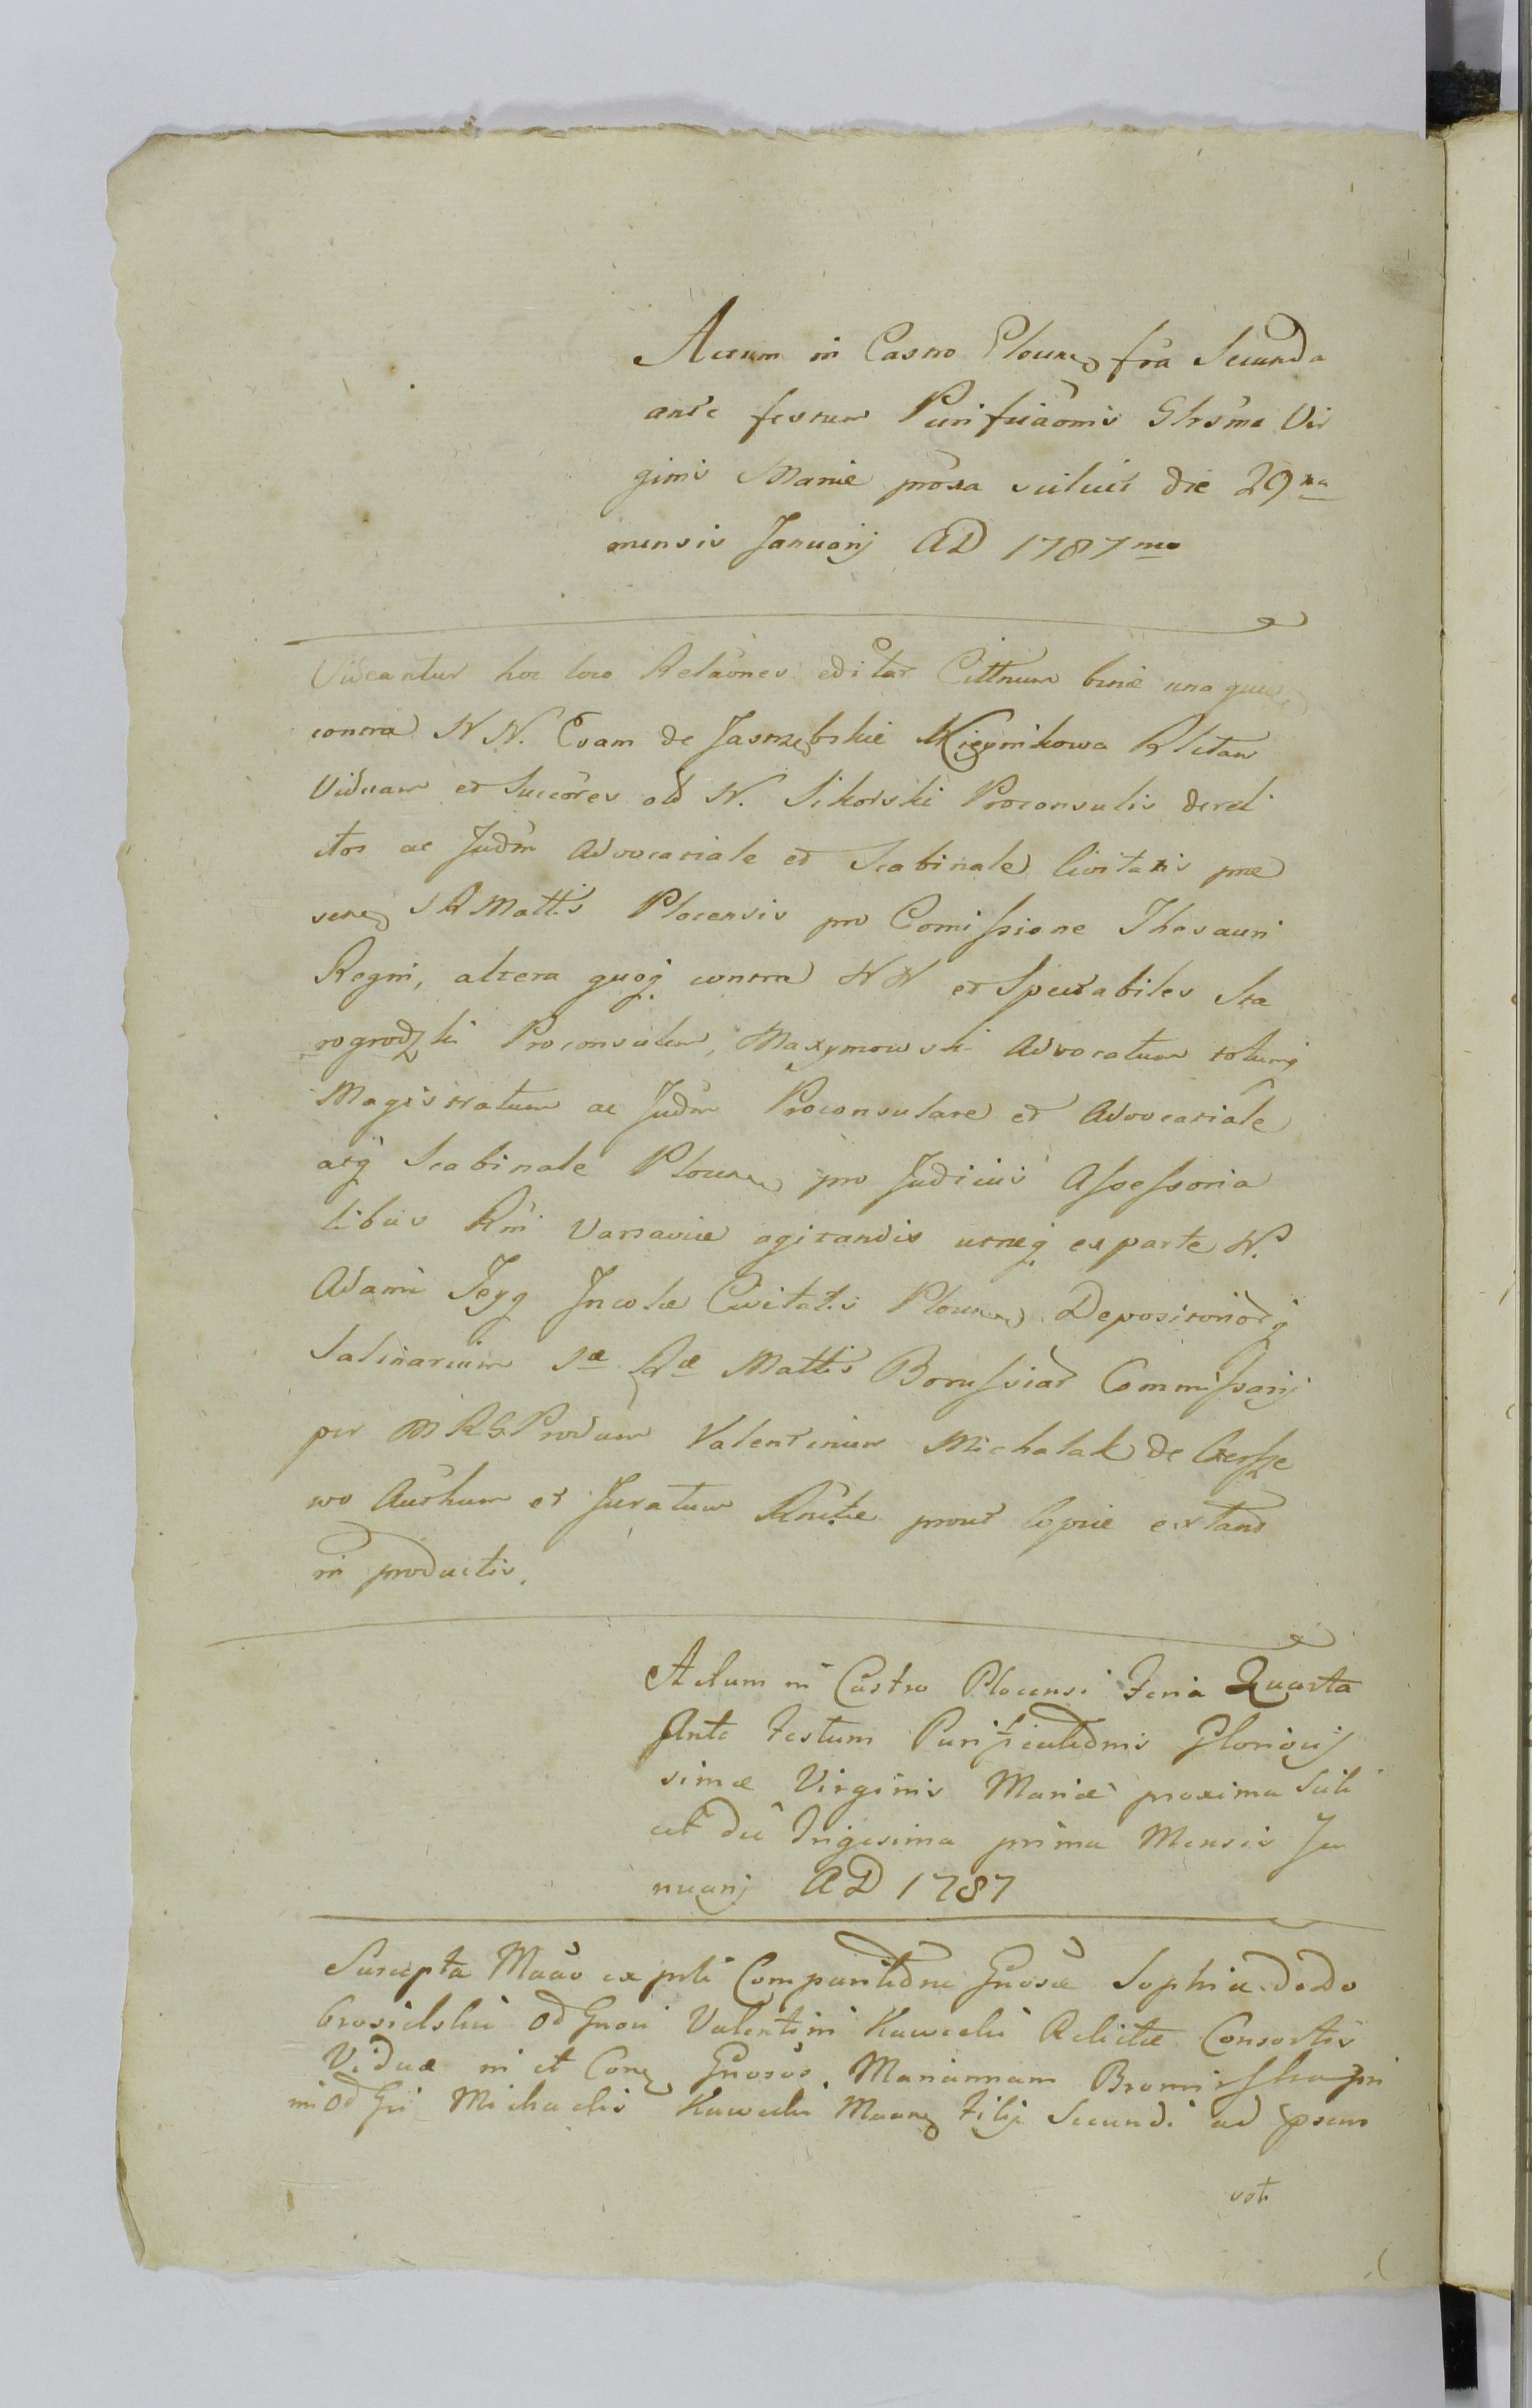 Actum in Castro Plocen fria Secunda
ante festum Purificaonis Glrsmæ Vir
ginis Mariæ proxa scilicet die 29na
mensis Januarij AD 1787mo
Videantur hoc loco Relaones editar Cittnum binæ una quid
contra NN. Evam de Jastrzębskie Kięynikowa Rlitam
Viduam et Succores old N. Sikorski Proconsulis dereli
ctos ac Judm Advocatiale et Scabinale Civitatis præ
senq SRMattis Plocensis pro Comissione Thesauri
Regni, altera quoq contra NN et Spectabiles Sta
rogrodzki Proconsulem, Maxymowski Advocatum totumq
Magistratum ac Judm Proconsulare et Advocatiale
atq Scabinale Plocen pro Judiciis Assessoria
libus Rni Varsaviæ agitandis utraq ex parte N.
Adami Jeyg Incolæ Civitatis Plocen Depositoriorq
Salinarium Sæ Ræ Mattis Borussiar Commissarij
per MRGProvdum Valentinum Michalak de
wo Authum et Juratum Rnitæ prout Copiæ extant
in productis.
Actum in Castro Plocensi Feria Quarta
Ante Festum Purificationis Gloriosis
simæ Virginis Mariæ proxima Scili
cet die Trigesima prima Mensis Ja
nuarij AD 1787
Suscepta Maao ex prti Comparitione Gnosæ Sophiæ de Do
brosielskie od Gnosi Valentini Kawecki Relictæ Consortis
Viduæ in et Conq Gnosos Mariannam pri
mi od Gsi Michaelis Kawecki Maanq Filij Secundi ad psens
voti